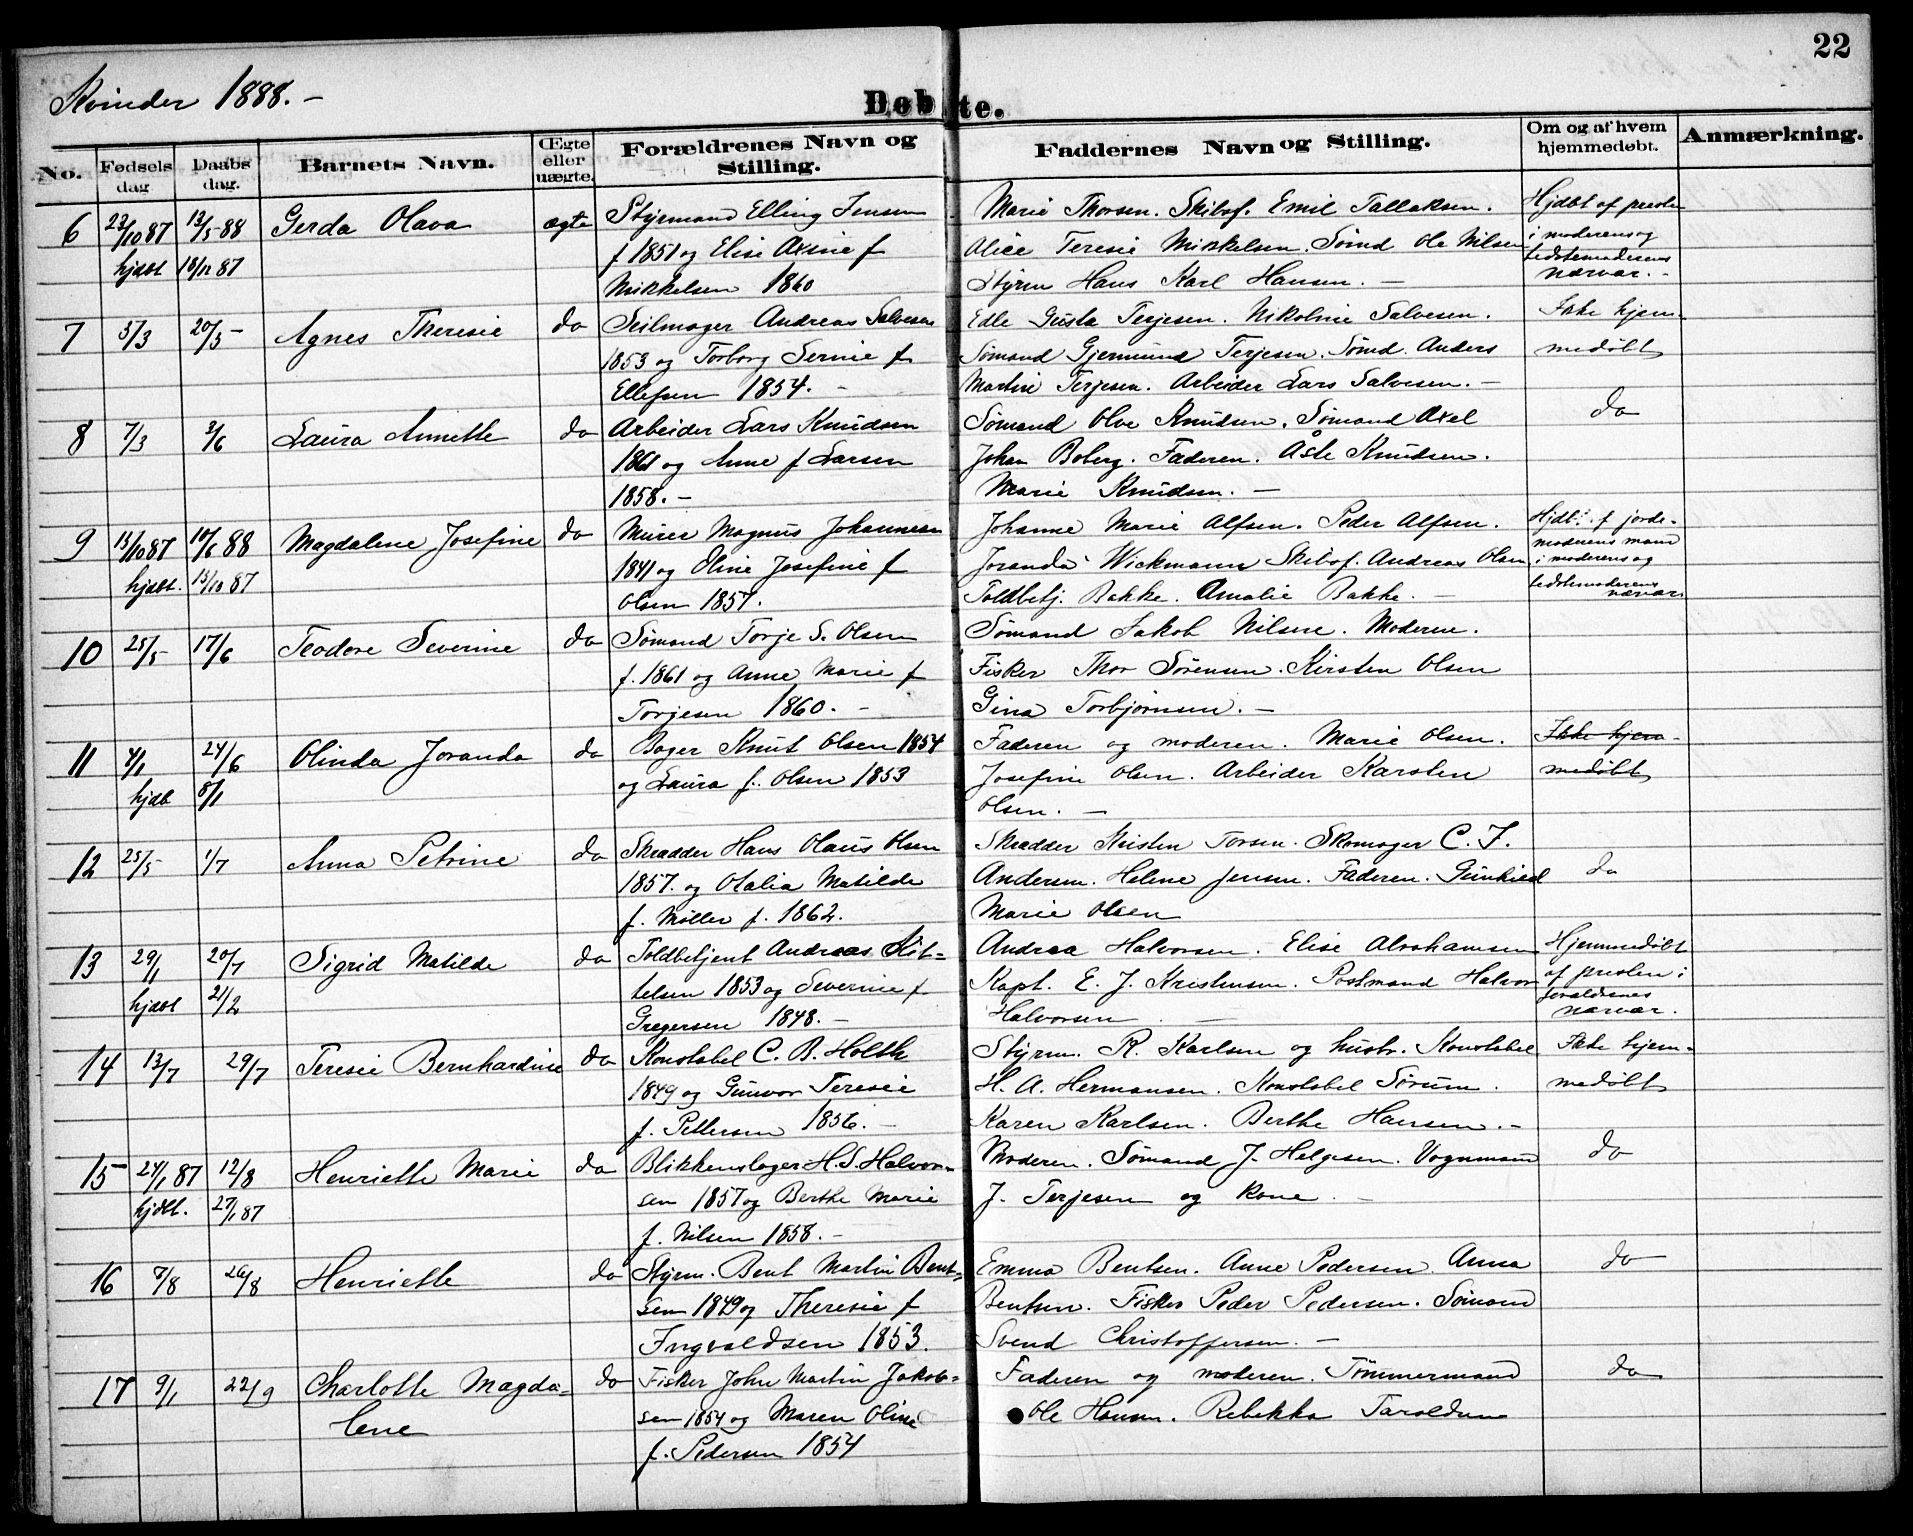 22
Kvinder 1888. –
Døbte.
No. Fødsels dag Daabs dag. Barnets Navn. Œgte eller uægte. Forældrenes Navn og Stilling. Faddernes Navn og Stilling. Om og af hvem hjemmedøbt. Anmærkning.
6 23/10 87 13/5 88 Gerda Olava ægte Styrmand Elling Jensen Marie Thorsen. Skibsf. Emil Tallaksen. Hjdbt af
hjdbt 10/12 87 f 1851 og Elise Axine f Alice Teresie Mikkelsen. Sømd Ole Nilsen i moderens og
Mikkelsen 1860 Styrm Hans Karl Hansen. – bedstemoderens nærvær. –
7 5/3 20/5 – Agnes Theresie do Seilmager Andreas Salvesen Edle Gusta Terjesen. Nikoline Salvesen. Ikke hjem-
1853 og Torborg Serine f Sømand Gjermund Terjesen. Sømd. Anders medøbt
Ellefsen 1854. – Martin Terjesen. Arbeider Lars Salvesen. –
8 7/3 3/6 Laura Annette do Arbeider Lars Knudsen Sømand Olve Knudsen. Sømand Axel do
1861 og Anne f Larsen Johan Boberg. Faderen. Åste Knudsen.
1858. – Marie Knudsen. –
9 15/10 87 10/6 88 Magdalene Josefine do Murer Magnus Johannesen Johanne Marie Alfsen. Peder Alfsen. Hjdbt. f jorde-
hjdbt. 15/10 87 1841 og Oline Josefine f Joranda Wickmann Skibsf. Andreas Olsen moderens mand i moderens og
Olsen 1857. Toldbetj. Bakke. Amalie Bakke. – bedstemoderens nærvær
10 25/5 17/6 Teodore Severine do Sømand Torje S. Olsen Sømand Jakob Nilsen. Moderen.
f. 1861 og Anne Marie f Fisker Thor Sørensen. Kirsten Olsen
Torjesen 1860. – Gina Torbjørnsen. –
11 4/1 24/6 Olinda Joranda do Bager Knut Olsen 1854 Faderen og moderen. Marie Olsen. Ikke hjem-
hjdb 8/1 og Laura f. Olsen 1853 Josefine Olsen. Arbeider Karsten medøbt
Olsen. –
12 25/5 1/7 Anna Petrine do Skrædder Hans Olaus Olsen Skrædder Kristen Torsen. Skomager C. F.
1857. og Otalia Matilde Andersen. Helene Jensen. Faderen. Gunhild do
f. Møller f. 1862. Marie Olsen
13 29/1 20/7 Sigrid Matilde do Toldbetjent Andreas Kit- Andrea Halvorsen. Elise Abrahamsen Hjemmedøbt
hjdbt 21/2 telsen 1853 og Severine f Kapt. E. J. Kristensen. Postmand Halvor af presten i
Gregersen 1848. – Halvorsen. – forældrenes nærvær.
14 13/7 29/7 Teresie Bernhardine do Konstabel C. B. Holth Styrm. R. Karlsen og hustr. Konstabel Ikke hjem-
1849 og Gunvor Teresie H. A. Hermansen. Konstabel Sørum. medøbt
f. Pettersen 1856. – Karen Karlsen. Berthe Hansen. –
15 24/1 87 12/8 Henriette Marie do Blikkenslager H. S. Halvor- Moderen. Sømand J. Helgesen. Vognmand do
hjdbt. 27/1 87 sen 1857 og Berthe Marie J. Terjesen og kone. –
f. Nilsen 1858. –
16 7/8 26/8 Henriette do Styrm. Bent Martin Bent- Emma Bentsen. Anne Pedersen Anna do
sen 1849 og Theresie f Bentsen. Fisker Peder Pedersen. Sømand
Ingvaldsen 1853. Svend Christoffersen. –
17 9/1 22/9 Charlotte Magda- do Fisker John Martin Jakob- Faderen og moderen. Tømmermand do
lene sen 1854 og Maren Oline Ole Hansen. Rebekka Taraldsen
f. Pedersen 1854